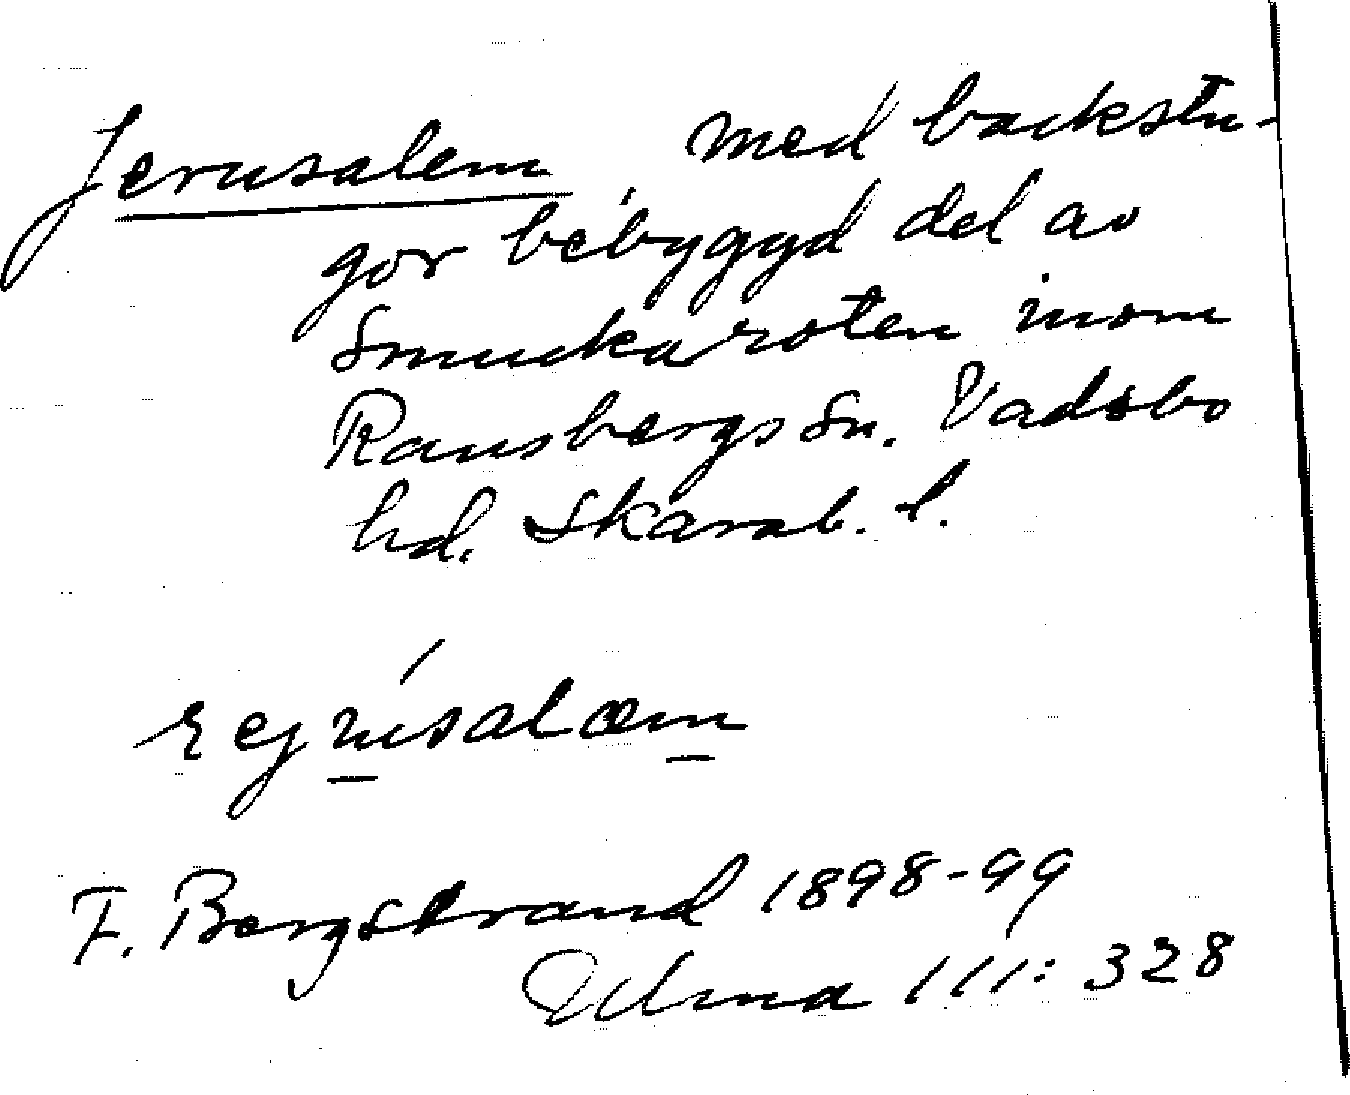 Jerusalem, med backstu-
gor bebyggd del av
Smuckaroten inom
Ransbergs sn. Vadsbo
hd. Skarab. l.
F. Bergstrand 1898-99
Ulma 111: 328